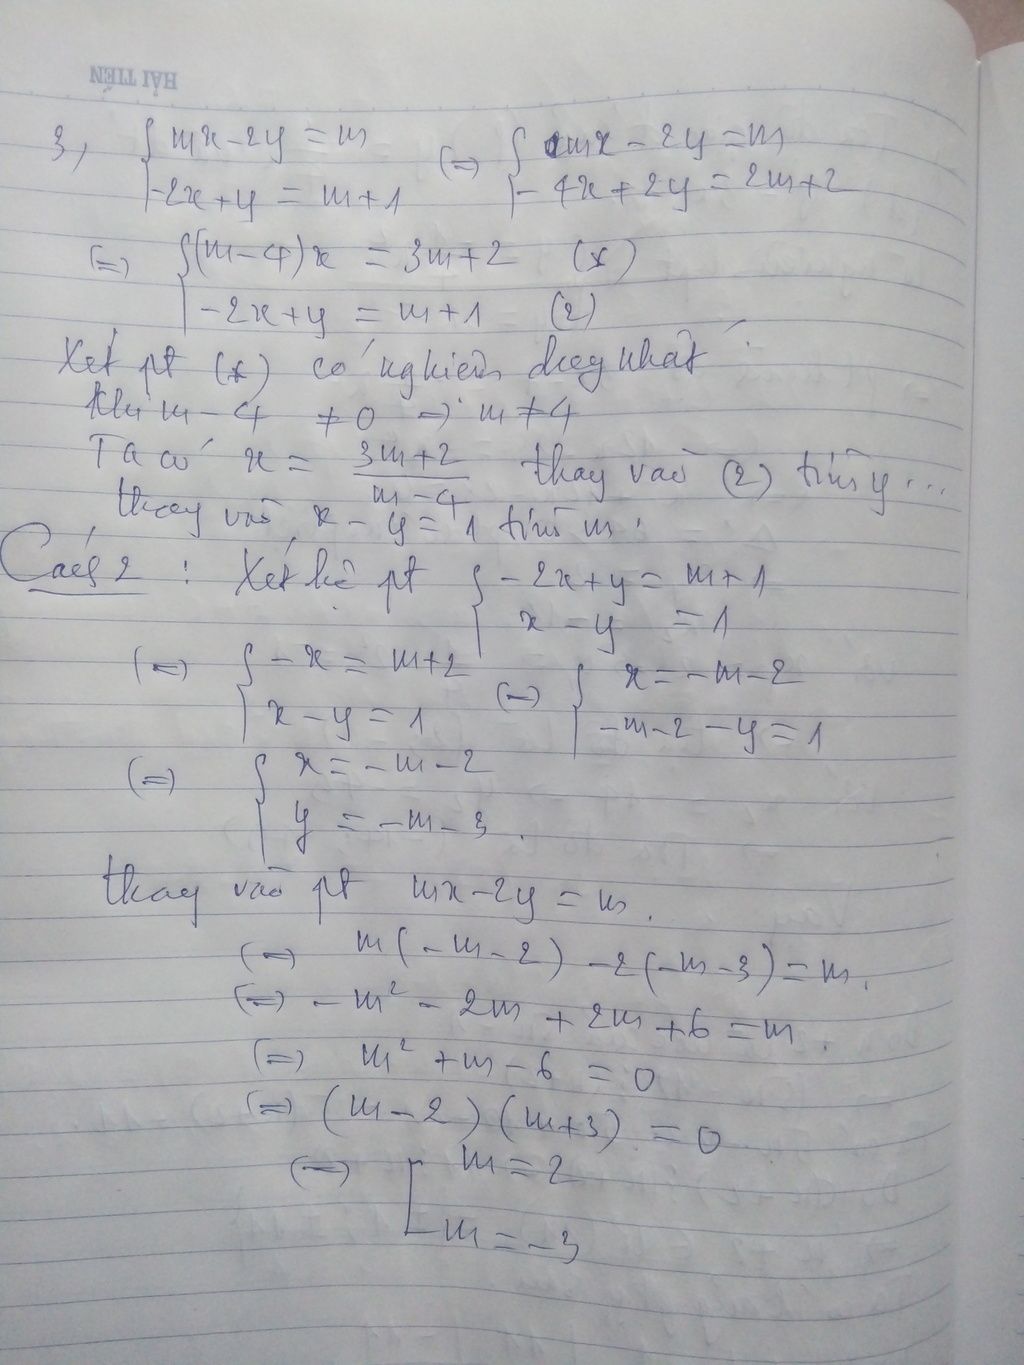 HẢI TIẾN
3, { mx - 2y = m (=) { mx - 2y = m
-2x + y = m + 1 - 4x + 2y = 2m + 2
(=) { (m - 4)x = 3m + 2 (*)
-2x + y = m + 1 (2)
Xét pt (*) có nghiệm duy nhất
khi m - 4 ≠ 0 => m ≠ 4
Ta có x = \frac{3m + 2}{m - 4} thay vào (2) tìm y ...
thay vào x - y = 1 tìm m.
Cách 2 : Xét hệ pt { -2x + y = m + 1
x - y = 1
(=) { -x = m + 2 (=) { x = -m - 2
x - y = 1 -m - 2 - y = 1
(=) { x = -m - 2
y = -m - 3.
thay vào pt mx - 2y = m.
(=) m(-m - 2) - 2(-m - 3) = m.
(=) -m² - 2m + 2m + 6 = m.
(=) m² + m - 6 = 0
(=) (m - 2)(m + 3) = 0
(=) [ m = 2
m = -3